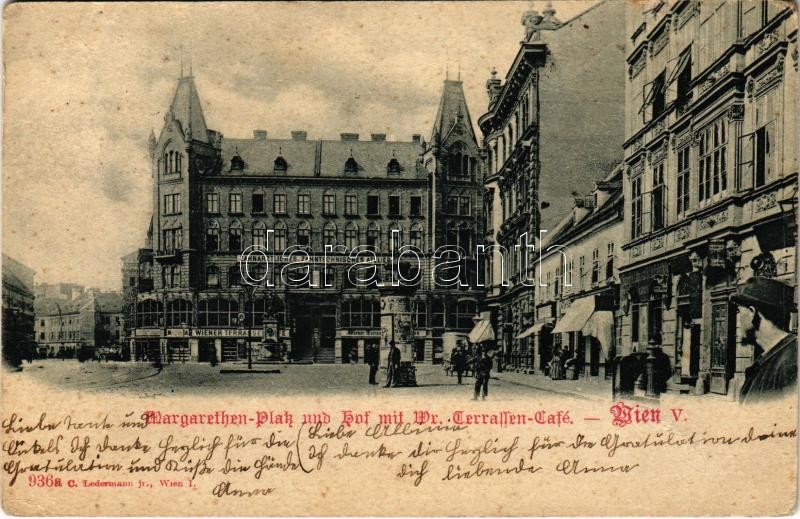 WIENER TERRASSEN
Margarethen-Platz und Hof mit Wr. Terrassen-Café. – Wien V.
Liebe Tante und
Onkels Ich danke herzlich für die
Gratulation und Küße die Hände
Anna
Liebe Albina
Ich danke dir herzlich für die Gratulation deine
dich liebende Anna
936a C. Ledermann jr., Wien I.
darabanth